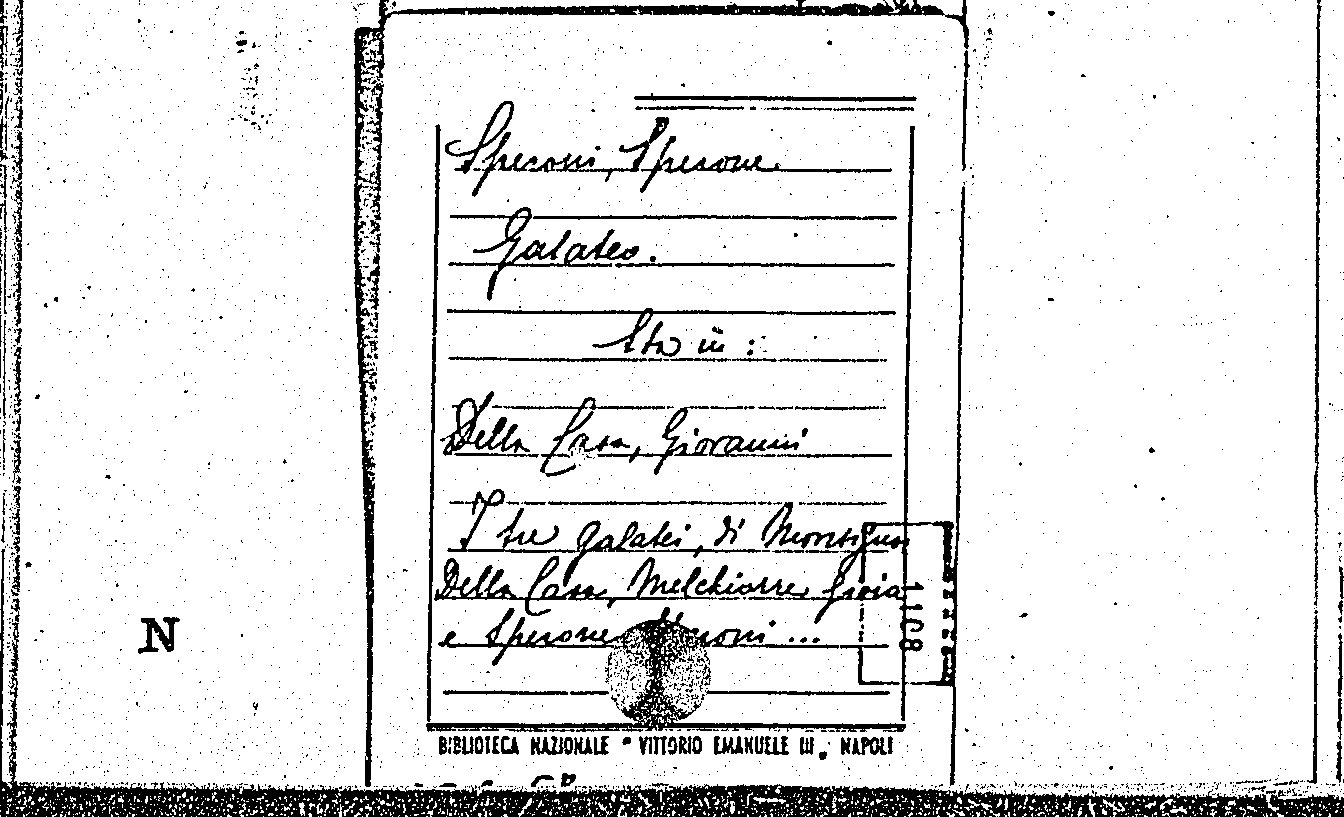 Speroni, Sperone
Galateo.
Sta in:
Della Casa, Giovanni
I tre galatei, di Monsignor
Della Casa, Melchiorre Gioia
e Sperone Speroni ...
1108
N
BIBLIOTECA NAZIONALE "VITTORIO EMANUELE III" NAPOLI